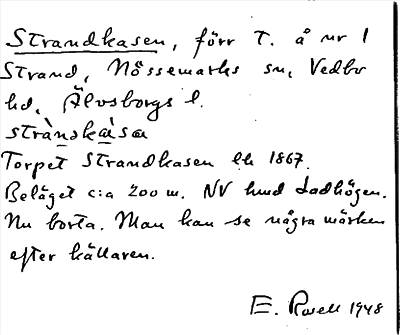 Strandkasen, förr T. å nr 1
Strand, Nössemarks sn, Vedbo
hd, Älvsborgs l.
strànskàsa
Torpet Strandkasen lh 1867.
Beläget c:a 200 m. NV hmd Ladhögen.
Nu borta. Man kan se några märken
efter källaren.
E. Rosell 1948